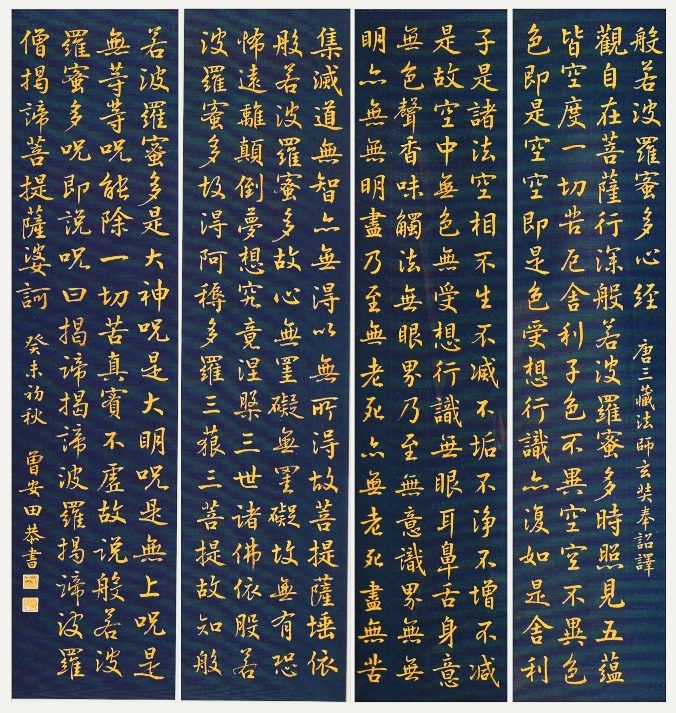 般若波羅蜜多心経 唐三藏法師玄奘奉詔譯
觀自在菩薩行深般若波羅蜜多時照見五蘊
皆空度一切苦厄舍利子色不異空空不異色
色即是空空即是色受想行識亦復如是舍利
子是諸法空相不生不滅不垢不淨不增不減
是故空中無色無受想行識無眼耳鼻舌身意
無色聲香味觸法無眼界乃至無意識界無無
明亦無無明盡乃至無老死亦無老死盡無苦
集滅道無智亦無得以無所得故菩提薩埵依
般若波羅蜜多故心無罣礙無罣礙故無有恐
怖遠離顛倒夢想究竟涅槃三世諸佛依般若
波羅蜜多故得阿耨多羅三藐三菩提故知般
若波羅蜜多是大神咒是大明咒是無上咒是
無等等咒能除一切苦真實不虛故說般若波
羅蜜多咒即說咒曰揭諦揭諦波羅揭諦波羅
僧揭諦菩提薩婆訶 癸未初秋 曾安田恭書